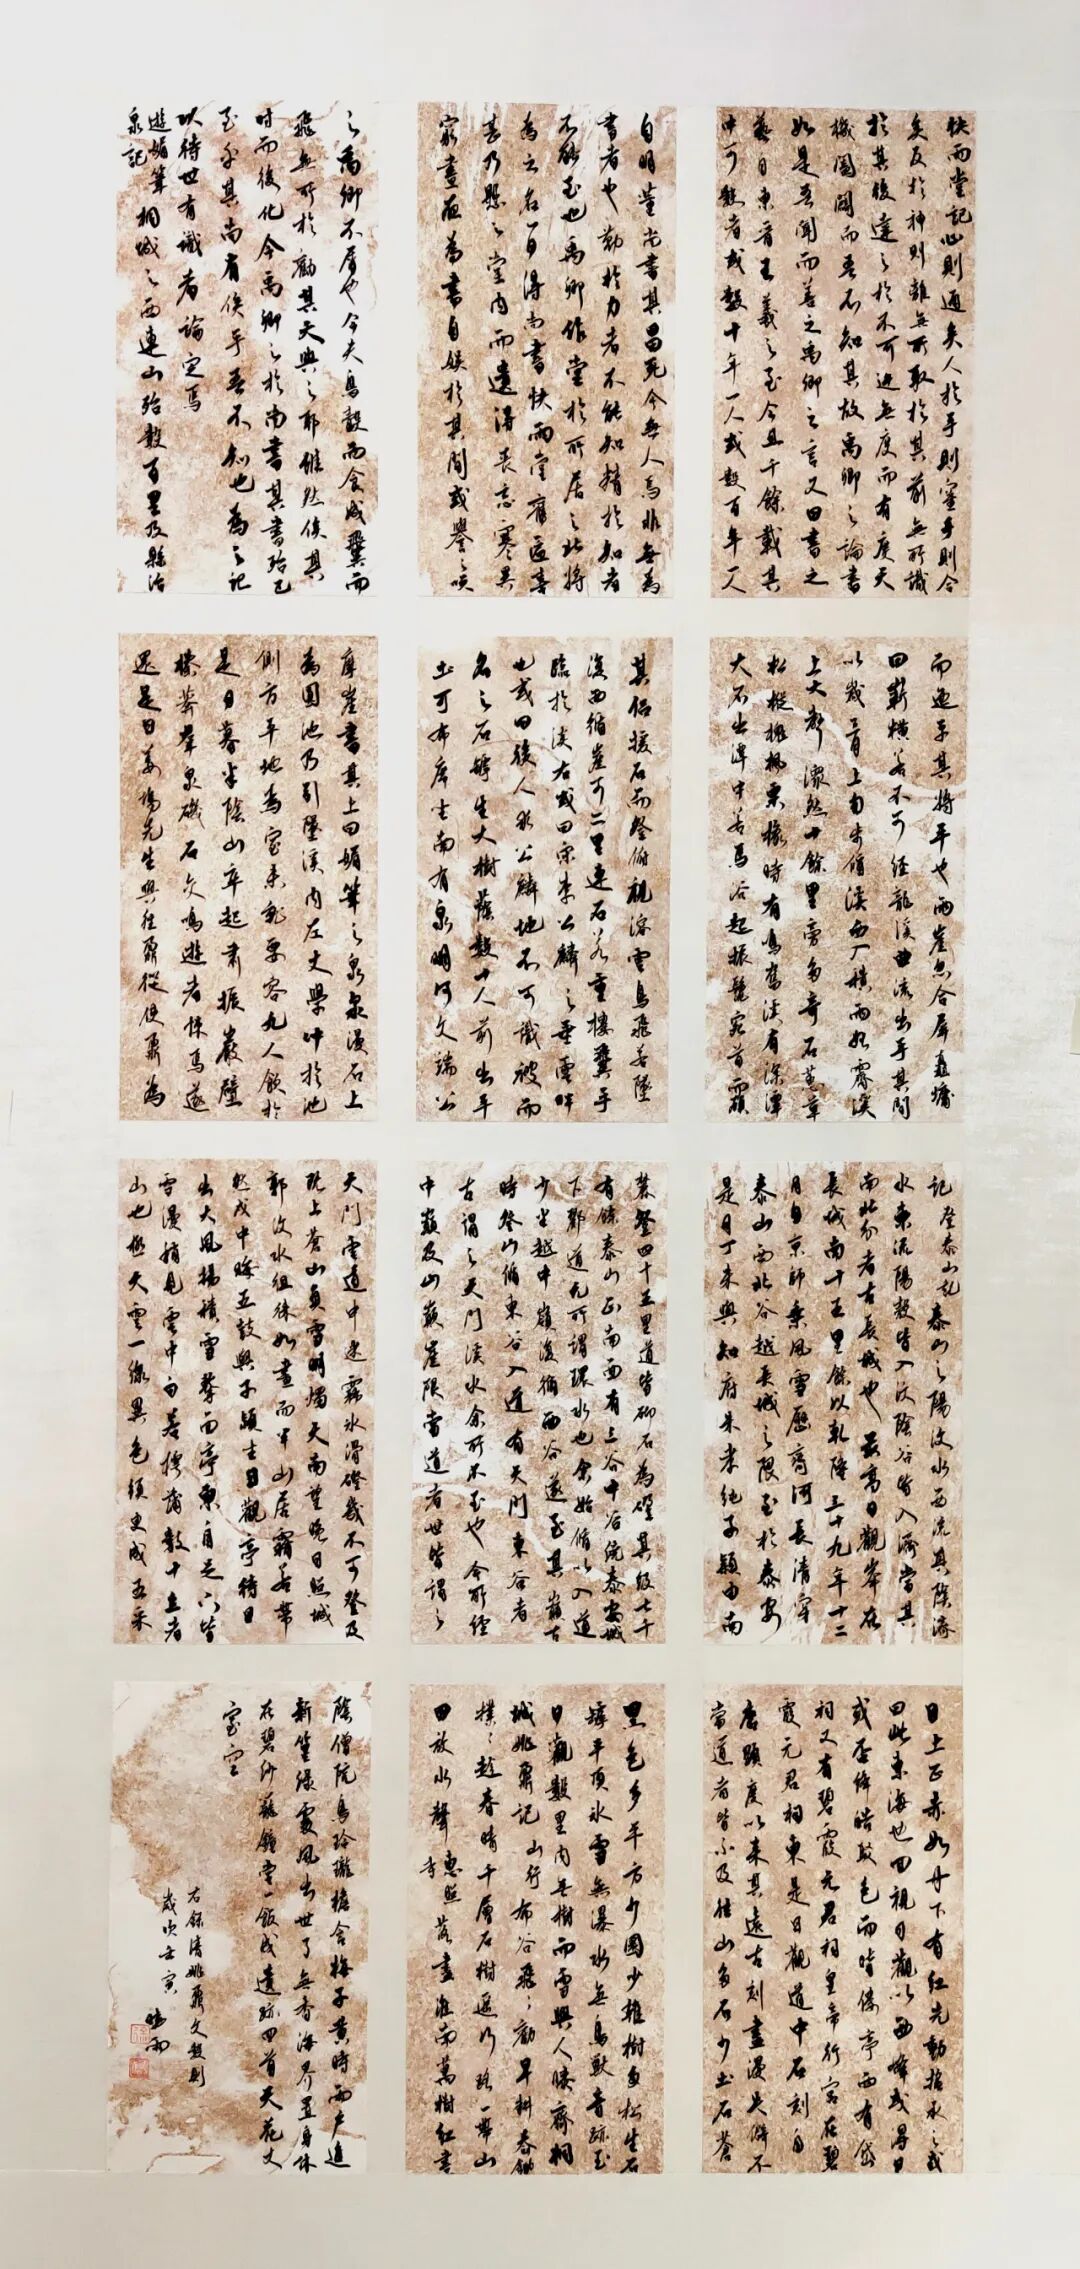 快雨堂記心則通矣入於手則窒手則合
矣反於神則離無所取於其前無所識
於其後達之於不可迕無度而有度天
機闔闢而吾不知其故禹卿之論書
如是吾聞而善之禹卿之言又曰書之
藝自東晉王羲之至今且千餘載其
中可數者或數十年一人或數百年一人
自明董尚書其昌死今無人焉非無為
書者也勤於力者不能知精於知者
不能至也禹卿作堂於所居之北將
為之名一日得尚書快雨堂舊匾喜
甚乃懸之堂內而遺得喪忘寒暑
窮晝夜為書自娛於其間或譽之或笑
之禹卿不屑也今夫鳥鷇而食成翼而
飛無所於勸其天與之耶雖然俟其
時而後化今禹卿之於尚書其書殆已
至乎其尚有俟乎吾不知也為之記
以待世有識者論定焉
遊媚筆
泉記
桐城之西連山殆數百里及縣治
而迤平其將平也兩崖忽合屏矗墉
回嶄橫若不可徑龍溪曲流出乎其間
以歲三月上旬步循溪西入積雨始霽溪
上大聲漎然十餘里旁多奇石蕙草
松樅槐楓栗橡時有鳴巂溪有深潭
大石出潭中若馬浴起振鬣宛首而顧
其侶援石而登俯視溶雲鳥飛若墜
復西循崖可二里連石若重樓翼乎
臨於溪右或曰宋李公麟之垂雲沜
也或曰後人求公麟地不可識被而
名之石罅生大樹蔭數十人前出平
土可布席坐南有泉明何文端公
摩崖書其上曰媚筆之泉泉漫石上
為圓池乃引墜溪內左丈學沖於池
側方平地為室未就要客九人飲於
是日暮半陰山卒起肅振巖壁
榛莽群泉磯石交鳴遊者悚焉遂
還是日姜塢先生與往鼐從使鼐為
記登泰山記泰山之陽汶水西流其陰濟
水東流陽穀皆入汶陰谷皆入濟當其
南北分者古長城也最高日觀峯在
長城南十五里餘以乾隆三十九年十二
月自京師乘風雪歷齊河長清穿
泰山西北谷越長城之限至於泰安
是月丁未與知府朱孝純子潁由南
麓登四十五里道皆砌石為磴其級七千
有餘泰山正南面有三谷中谷繞泰安城
下酈道元所謂環水也余始循以入道
少半越中嶺復循西谷遂至其巔古
時登山循東谷入道有天門東谷者
古謂之天門溪水余所不至也今所經
中嶺及山巔崖限當道者世皆謂之
天門雲道中迷霧冰滑磴幾不可登及
既上蒼山負雪明燭天南望晚日照城
郭汶水徂徠如畫而半山居霧若帶
然戊申晦五鼓與子潁坐日觀亭待日
出大風揚積雪擊面亭東自足下皆
雲漫稍見雲中白若摴蒱數十立者
山也極天雲一線異色須臾成五采
日上正赤如丹下有紅光動搖承之或
曰此東海也回視日觀以西峰或得日
或否絳皓駁色而皆僂亭西有岱
祠又有碧霞元君祠皇帝行宮在碧
霞元君祠東是日觀道中石刻自
唐顯慶以來其遠古刻盡漫失僻不
當道者皆不及往山多石少土石蒼
黑色多平方少圜少雜樹多松生石
罅平頂冰雪無瀑水無鳥獸音跡至
日觀數里內無樹而雪與人膝齊桐
城姚鼐記山行布谷飛飛勸早耕春鋤
撲撲趁春晴千層石樹遙行路一帶山
田放水聲惠照寺落盡淮南萬樹紅書
陰僧院鳥玲瓏櫓含梅子黃時雨戶進
新篁綠處風出世了無香海界置身休
在碧紗籠鐘堂一飯成遺跡回首天花丈
室空
右錄清姚鼐文數則
歲次壬寅